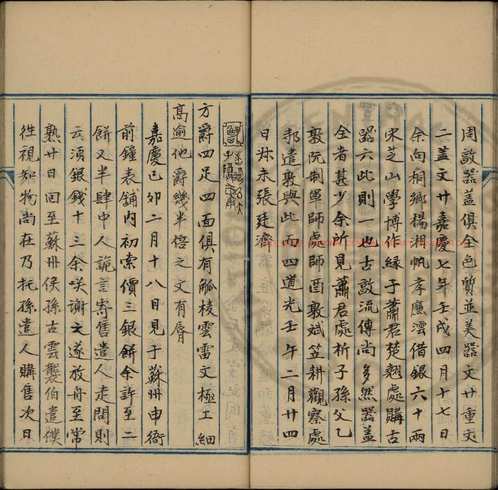 周敦器蓋俱全色質並美器文廿重文
二蓋文廿嘉慶七年壬戌四月十七日
余向桐鄉楊湘帆孝廉澐借銀六十兩
宋芝山學博作緣于蕭君楚翹處購古
器六此則一也古敦流傳尚多然器蓋
全者甚少余所見蕭君處析子孫父乙
敦阮制軍師處師酉敦斌笠耕觀察處
邦遣敦與此而四道光壬午二月廿四
日叔未張廷濟
方爵四足四面俱有觚棱雲雷文極工細
高逾他爵幾半倍之文有唇
嘉慶己卯二月十八日見于蘇州申衙
前鐘表鋪內初索價三銀餅余許至二
餅又半肆中人詭言寄售遣人走問則
云須銀錢十三余咲謝之遂放舟至常
熟廿日回至蘇州倩孫古雲襲伯遣僕
往視知物尚在乃托孫遣人購售次日